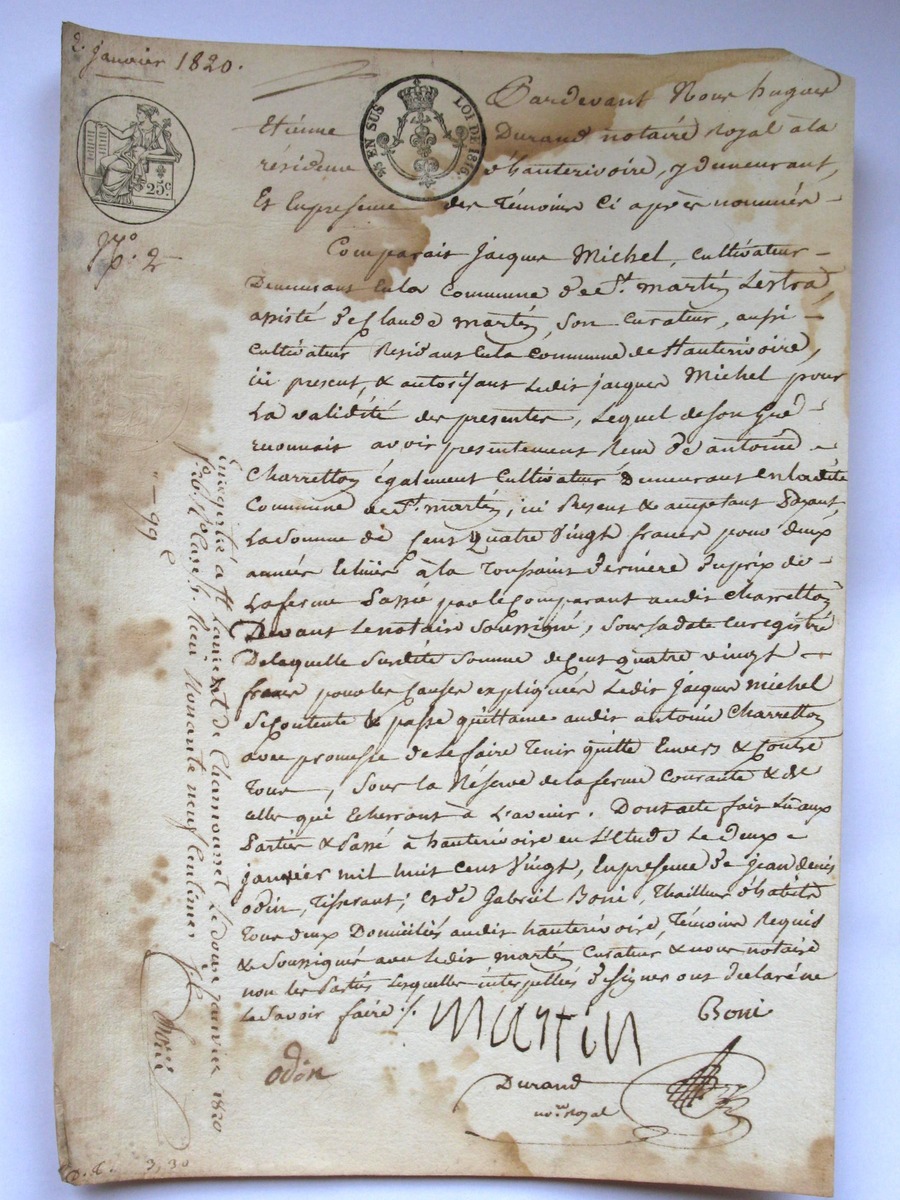 2. janvier 1820.
25c
EN SUS
LOI DE 1816
N.o 2
Pardevant Nous hugues
Etienne Durand notaire Royal à la
résidence d'hauterivoire, y demeurant,
Et En presence des Témoins Ci après nommés
Comparait Jacques Michel, Cultivateur
Demeurant En la Commune de St. martin Lestra,
assisté de Claude martin, son Curateur, aussi
Cultivateur Residant En la Commune de Hauterivoire,
ici present, & autorisant Ledit jacques Michel pour
La validité des presentes, Lequel de son gré
reconnait avoir presentement Reçu de antoine
Charretton également Cultivateur Demeurant en ladite
Commune de St. martin, ici Present & acceptant Payant,
La Somme de Cent Quatre Vingt francs pour deux
années Echues à la Toussaint Derniere Du prix de
La ferme Passé par le Comparant audit Charretton
Devant Le notaire Soussigné, Sous sa date Enregistré
De laquelle Susdite Somme de Cent quatre vingt
francs pour les Causes expliquées Ledit Jacques michel
Se Contente & passe quittance audit antoine Charretton
avec promesse de le faire Tenir quitte Envers & Contre
Tous, Sous La Réserve de la ferme Courante & de
Celles qui Echerront à L'avenir. Dont acte fait Lu aux
Parties & Passé à hauterivoire en L'Etude Le Deux
janvier mil huit cent Vingt, En presence de jean denis
odin, Tisserant; et de Gabriel Boni, Thailleur d'habits
Tous deux Domiciliés audit hauterivoire, Témoins Requis
& Soussignés avec Ledit martin Curateur & nous notaire
non les Parties Lesquelles interpellées de signer ont declaré ne
Le Savoir faire ./.
Martin
Boni
odin
Durand
no.re Royal
Enregistré à St Laurent de Chamousset Le douze janvier 1820
Reçu Nonante neuf Centimes
" — 99 c
3,30